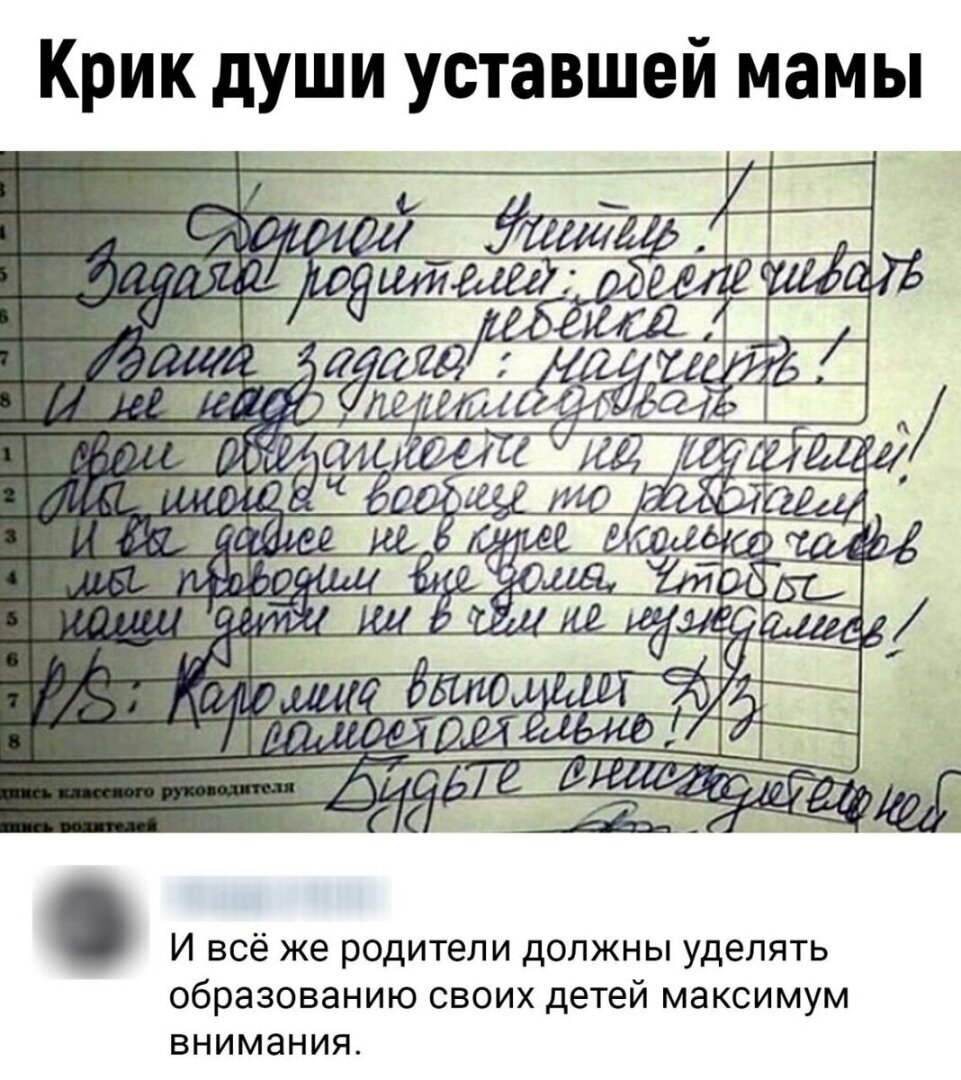 Крик души уставшей мамы
3
4
Дорогой Учитель!
5
Задача родителей: обеспечивать
6
ребёнка!
7
Ваша задача: научить!
8
И не надо перекладывать
1
свои обязанности на родителей!
2
Мы иногда вообще то работаем
3
И вы даже не в курсе сколько часов
4
мы проводим вне дома, чтобы
5
наши дети ни в чём не нуждались!
6
7
P/S: Каролина выполняет Д/З
8
самостоятельно!
дпись классного руководителя
Будьте снисходительней
дпись родителей
И всё же родители должны уделять
образованию своих детей максимум
внимания.